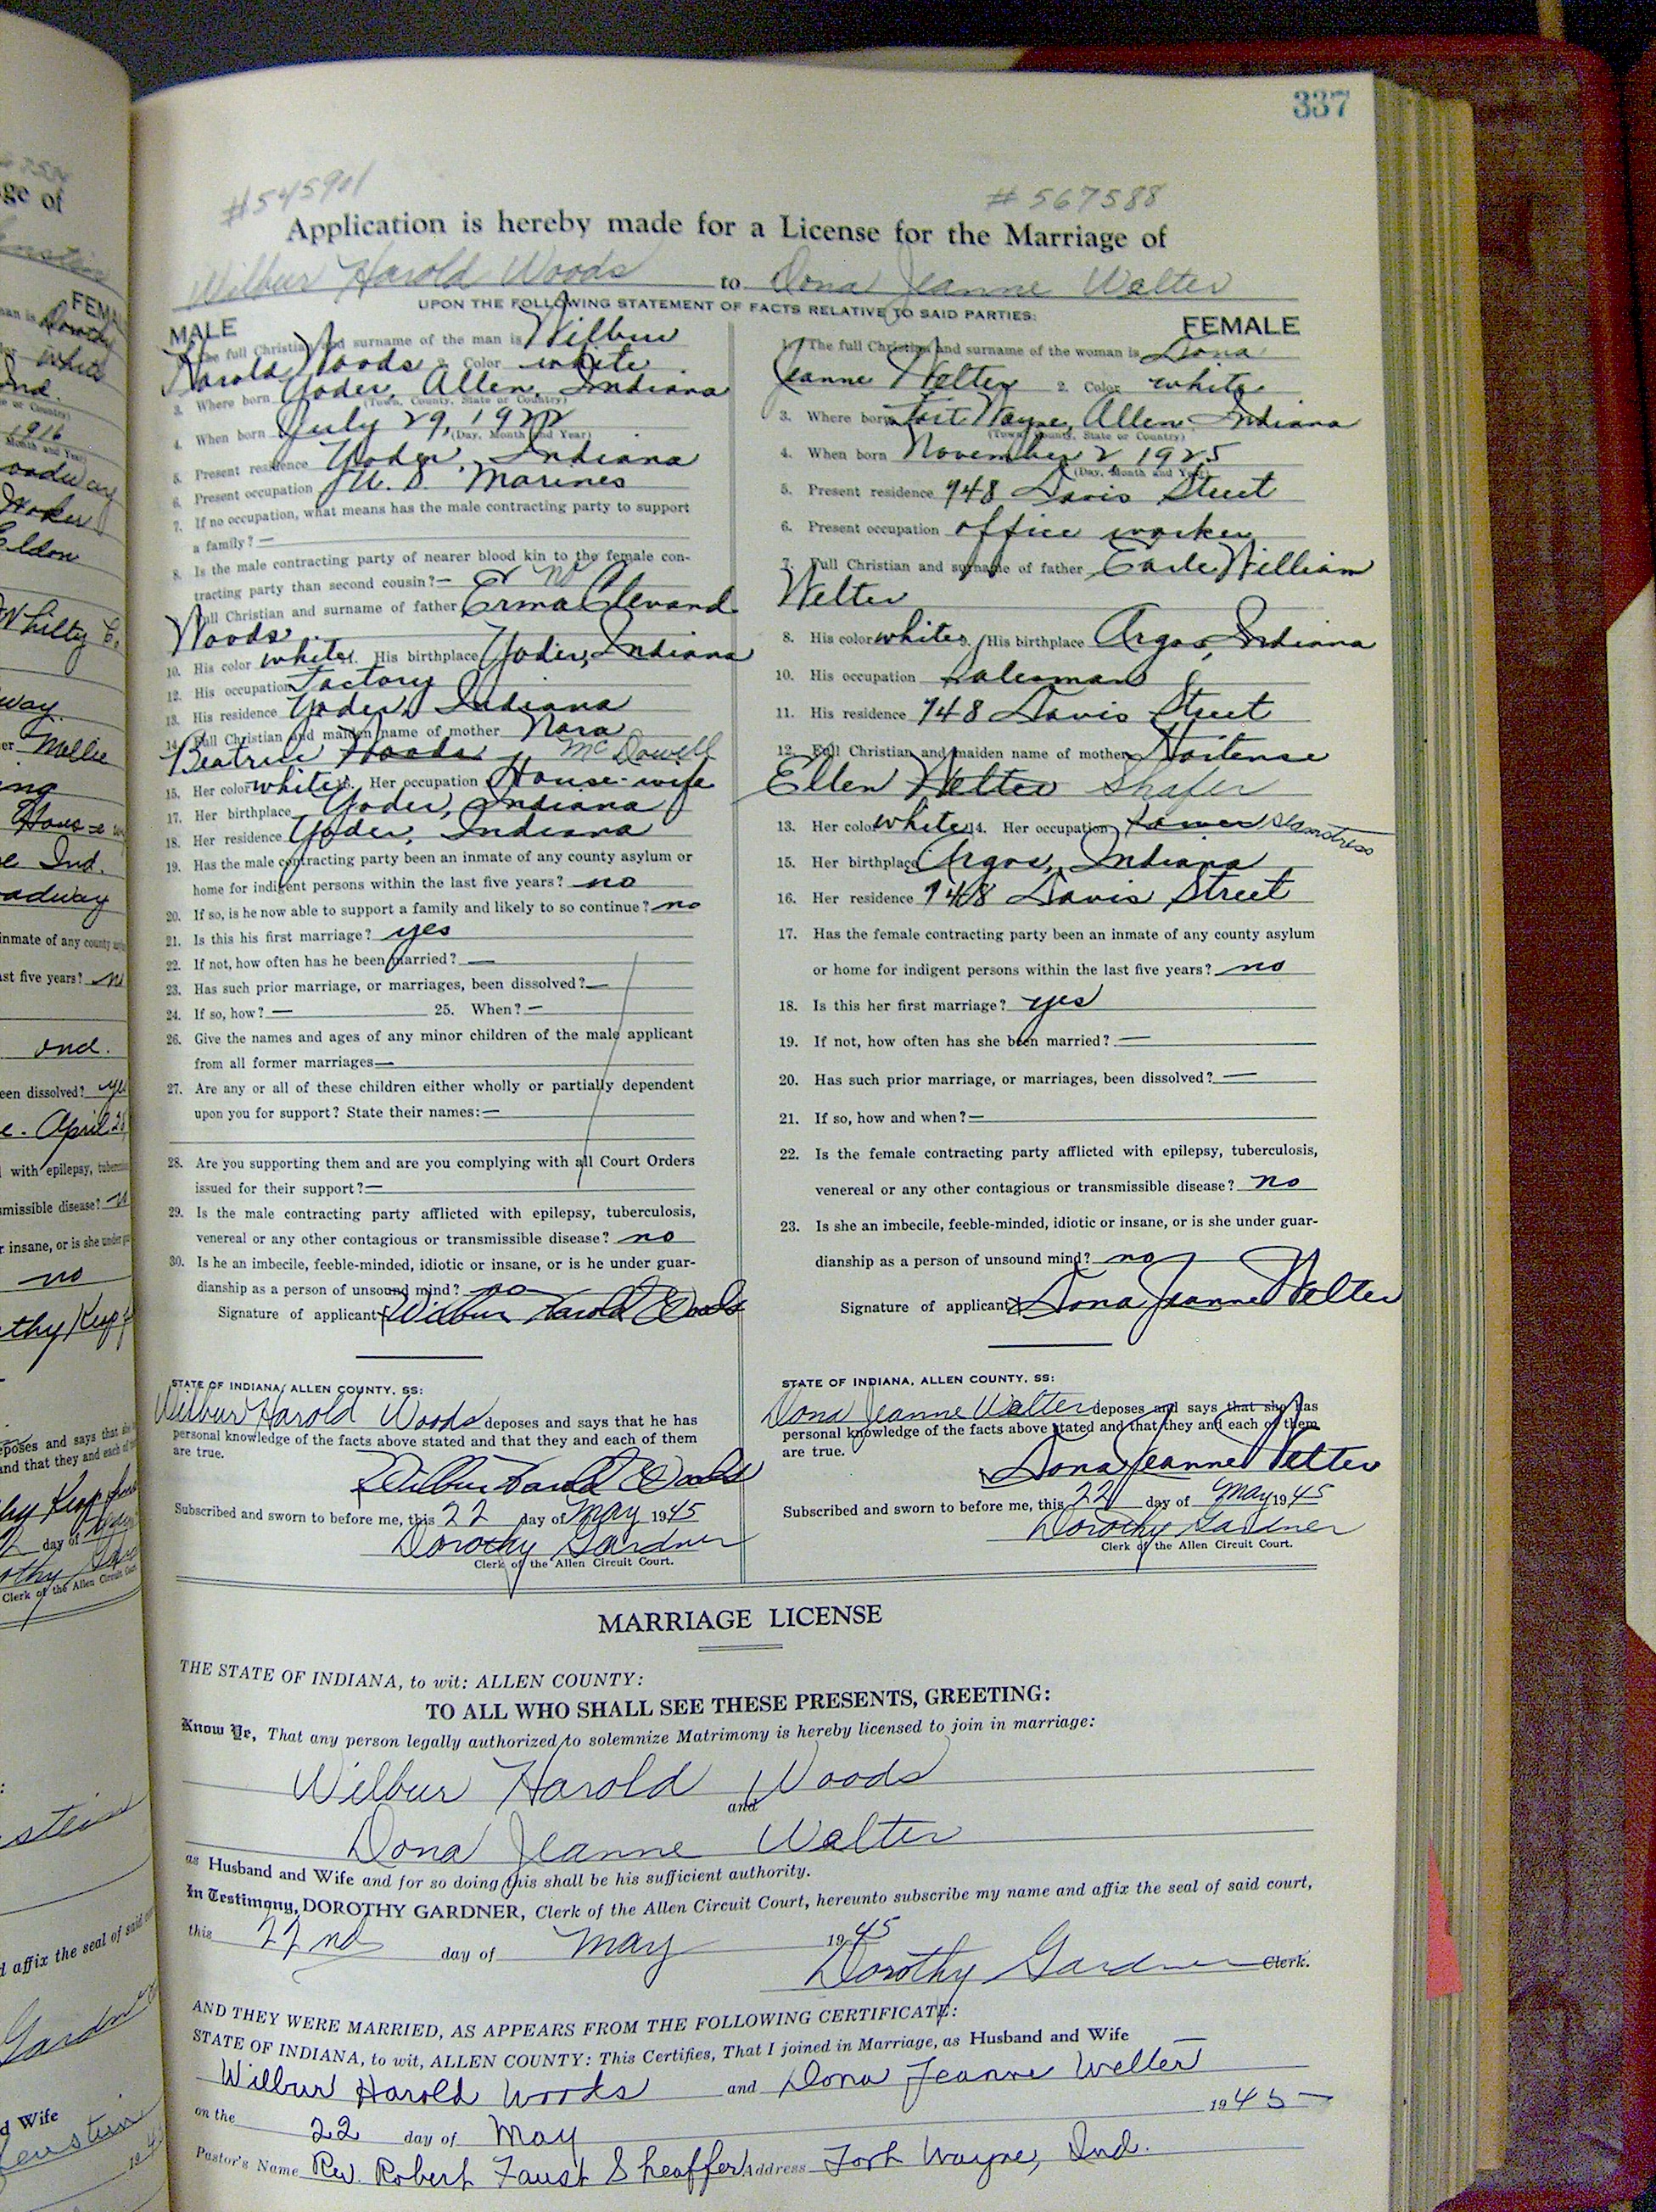 337
#545901 #567588
Application is hereby made for a License for the Marriage of
Wilbur Harold Woods to Dona Jeanne Welter
UPON THE FOLLOWING STATEMENT OF FACTS RELATIVE TO SAID PARTIES:
MALE
1. The full Christian and surname of the man is Wilbur
Harold Woods 2. Color white
3. Where born Yoder, Allen, Indiana
(Town, County, State or Country)
4. When born July 29, 1922
(Day, Month and Year)
5. Present residence Yoder, Indiana
6. Present occupation U. S. Marines
7. If no occupation, what means has the male contracting party to support
a family? —
8. Is the male contracting party of nearer blood kin to the female con-
tracting party than second cousin? — no
Full Christian and surname of father Erma Clevand
Woods
10. His color white. His birthplace Yoder, Indiana
12. His occupation Factory
13. His residence Yoder, Indiana
14. Full Christian and maiden name of mother Nora
Beatrice Woods McDowell
15. Her color white. Her occupation House-wife
17. Her birthplace Yoder, Indiana
18. Her residence Yoder, Indiana
19. Has the male contracting party been an inmate of any county asylum or
home for indigent persons within the last five years? no
20. If so, is he now able to support a family and likely to so continue? no
21. Is this his first marriage? yes
22. If not, how often has he been married? —
23. Has such prior marriage, or marriages, been dissolved? —
24. If so, how? — 25. When? —
26. Give the names and ages of any minor children of the male applicant
from all former marriages —
27. Are any or all of these children either wholly or partially dependent
upon you for support? State their names: —
28. Are you supporting them and are you complying with all Court Orders
issued for their support? —
29. Is the male contracting party afflicted with epilepsy, tuberculosis,
venereal or any other contagious or transmissible disease? no
30. Is he an imbecile, feeble-minded, idiotic or insane, or is he under guar-
dianship as a person of unsound mind? no
Signature of applicant Wilbur Harold Woods
STATE OF INDIANA, ALLEN COUNTY, SS:
Wilbur Harold Woods deposes and says that he has
personal knowledge of the facts above stated and that they and each of them
are true.
Wilbur Harold Woods
Subscribed and sworn to before me, this 22 day of May 1945
Dorothy Gardner
Clerk of the Allen Circuit Court.
FEMALE
1. The full Christian and surname of the woman is Dona
Jeanne Welter 2. Color white
3. Where born Fort Wayne, Allen Indiana
(Town, County, State or Country)
4. When born November 2 1925
(Day, Month and Year)
5. Present residence 948 Davis Street
6. Present occupation office worker
7. Full Christian and surname of father Earle William
Welter
8. His color white 9. His birthplace Argos, Indiana
10. His occupation Salesman
11. His residence 948 Davis Street
12. Full Christian and maiden name of mother Hortense
Ellen Welter Shafer
13. Her color white 14. Her occupation seamstress
15. Her birthplace Argos, Indiana
16. Her residence 948 Davis Street
17. Has the female contracting party been an inmate of any county asylum
or home for indigent persons within the last five years? no
18. Is this her first marriage? yes
19. If not, how often has she been married? —
20. Has such prior marriage, or marriages, been dissolved? —
21. If so, how and when? —
22. Is the female contracting party afflicted with epilepsy, tuberculosis,
venereal or any other contagious or transmissible disease? no
23. Is she an imbecile, feeble-minded, idiotic or insane, or is she under guar-
dianship as a person of unsound mind? no
Signature of applicant Dona Jeanne Welter
STATE OF INDIANA, ALLEN COUNTY, SS:
Dona Jeanne Welter deposes and says that she has
personal knowledge of the facts above stated and that they and each of them
are true.
Dona Jeanne Welter
Subscribed and sworn to before me, this 22 day of May 1945
Dorothy Gardner
Clerk of the Allen Circuit Court.
MARRIAGE LICENSE
THE STATE OF INDIANA, to wit: ALLEN COUNTY:
TO ALL WHO SHALL SEE THESE PRESENTS, GREETING:
Know Ye, That any person legally authorized to solemnize Matrimony is hereby licensed to join in marriage:
Wilbur Harold Woods
and
Dona Jeanne Welter
as Husband and Wife and for so doing this shall be his sufficient authority.
In Testimony, DOROTHY GARDNER, Clerk of the Allen Circuit Court, hereunto subscribe my name and affix the seal of said court,
this 22nd day of May 1945
Dorothy Gardner Clerk.
AND THEY WERE MARRIED, AS APPEARS FROM THE FOLLOWING CERTIFICATE:
STATE OF INDIANA, to wit, ALLEN COUNTY: This Certifies, That I joined in Marriage, as Husband and Wife
Wilbur Harold Woods and Dona Jeanne Welter
on the 22 day of May 1945
Pastor's Name Rev. Robert Faust Sheaffer Address Fort Wayne, Ind.